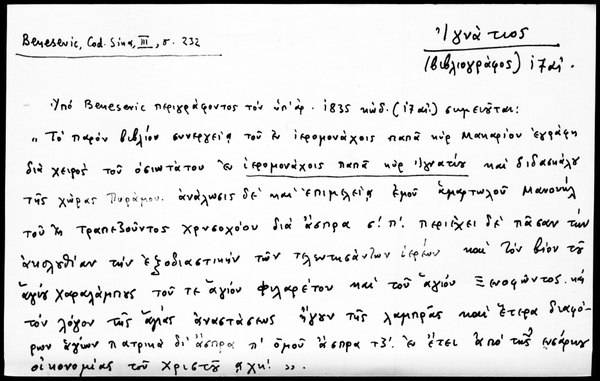 Benesevic, Cod. Sina, III, σ. 232
Ἰγνάτιος
(βιβλιογράφος) ιζ´ αἰ.
Ὑπό Benesevic περιγράφοντος τόν ὑπ' ἀρ. 1835 κώδ. (ιζ´ αἰ.) σημειοῦται:
" Τό παρόν βιβλίον συνεργείᾳ τοῦ ἐν ἱερομονάχοις παπᾶ κύρ Μακαρίου ἐγράφη
διά χειρός τοῦ ὁσιωτάτου ἐν ἱερομονάχοις παπᾶ κύρ Ἰγνατίου καί διδασκάλου
τῆς χώρας Πυράμου. ἀνάλωσις δέ καί ἐπιμελείᾳ ἐμοῦ ἁμαρτωλοῦ Μανουήλ
τοῦ ἐκ Τραπεζοῦντος χρυσοχόου διά ἄσπρα σ´. π´. περιέχει δέ πᾶσαν τήν
ἀκολυθίαν τήν ἐξοδιαστικήν τῶν τελευτησάντων ἱερέων καί τόν βίον τοῦ
ἁγίου Χαραλάμπους τοῦ τε ἁγίου Φιλαρέτου καί τοῦ ἁγίου Ξενοφῶντος. καί
τόν λόγον τῆς ἁγίας ἀναστάσεως ἤγουν τῆς λαμπρᾶς καί ἕτερα διαφό-
ρων ἁγίων πατρικά δι' ἄσπρα π´ ὁμοῦ ἄσπρα τξ´. ἐν ἔτει ἀπό τῆς ἐνσάρκου
οἰκονομίας τοῦ Χριστοῦ ".